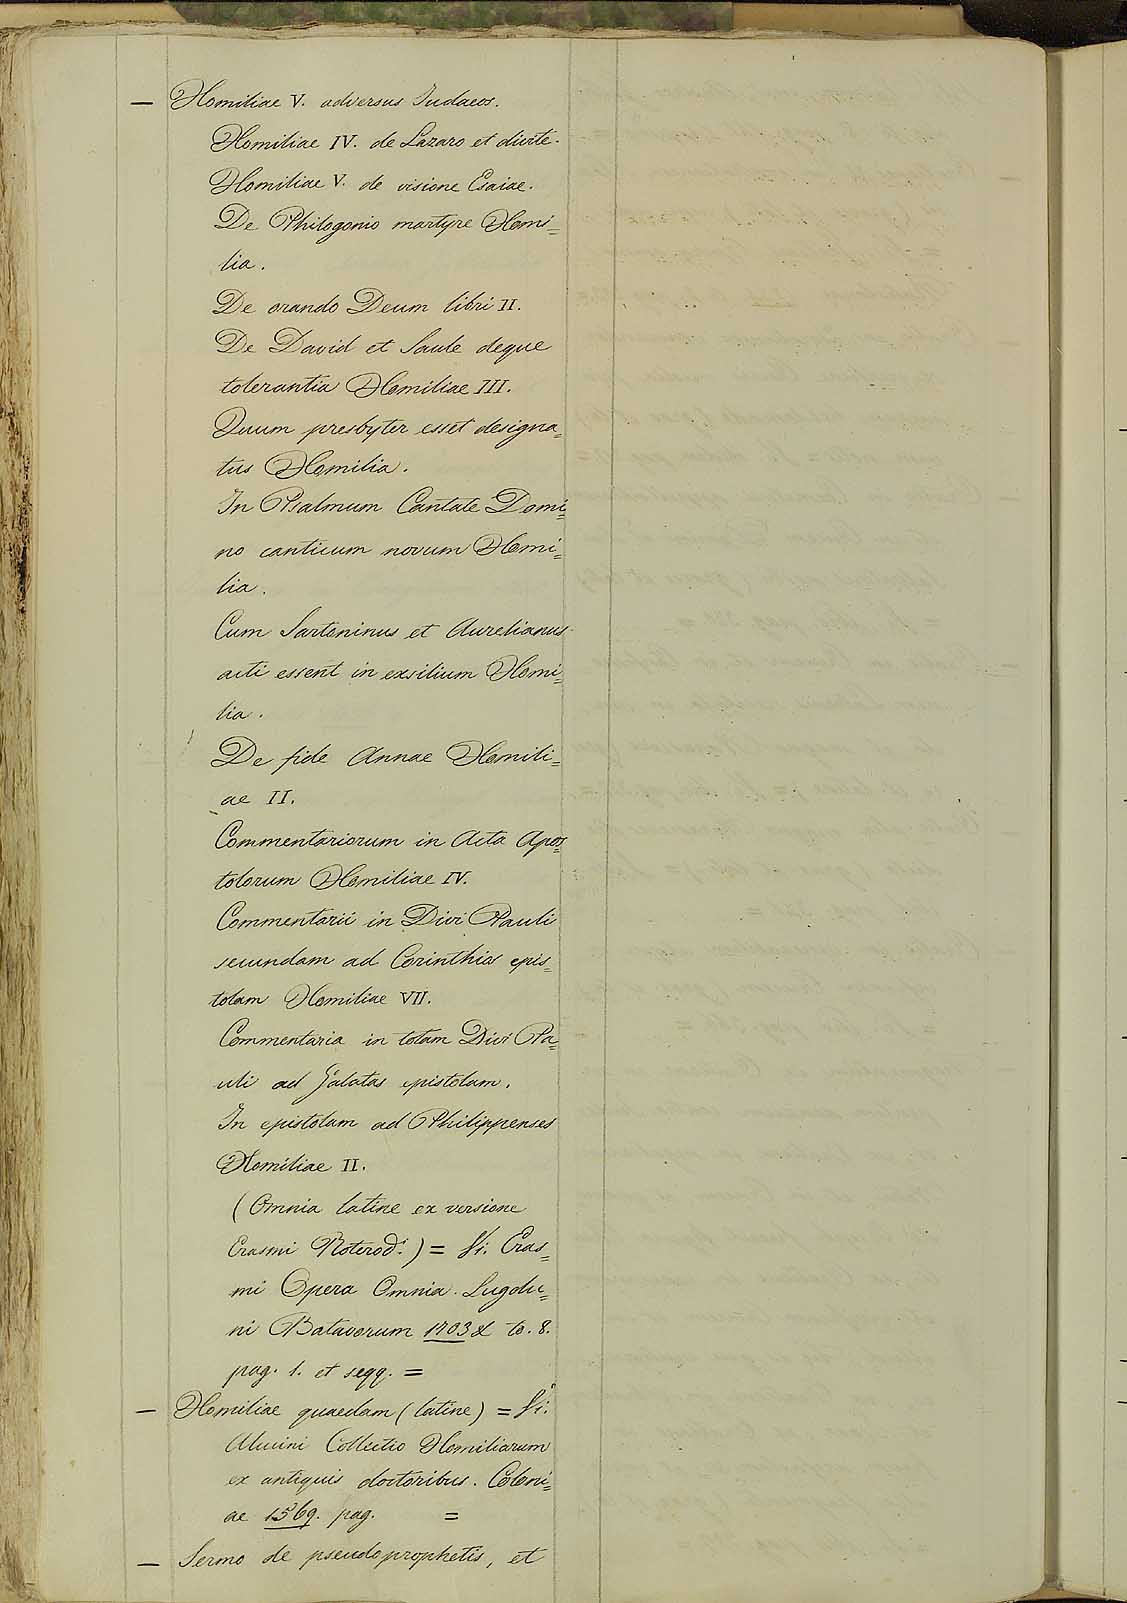 — Homiliae V. adversus Judaeos.
Homiliae IV. de Lazaro et divite.
Homiliae V. de visione Esaiae.
De Philogonio martyre Homi=
lia.
De orando Deum libri II.
De David et Saule deque
tolerantia Homiliae III.
Quum presbyter esset designa=
tus Homilia.
In Psalmum Cantate Domi=
no canticum novum Homi=
lia.
Cum Sartoninus et Aurelianus
acti essent in exsilium Homi=
lia.
De fide Annae Homili=
ae II.
Commentariorum in Acta Apos=
tolorum Homiliae IV.
Commentarii in Divi Pauli
secundam ad Corinthios epis=
tolam Homiliae VII.
Commentaria in totam Divi Pa=
uli ad Galatas epistolam.
In epistolam ad Philippenses
Homiliae II.
(Omnia latine ex versione
Erasmi Roterod.) = Si. Eras=
mi Opera Omnia. Lugdu=
ni Batavorum 1703 & to. 8.
pag. 1. et seqq. =
— Homiliae quaedam (latine) = Si.
Alcuini Collectio Homiliarum
ex antiquis doctoribus. Coloni=
ae 1569. pag. =
— Sermo de pseudoprophetis, et